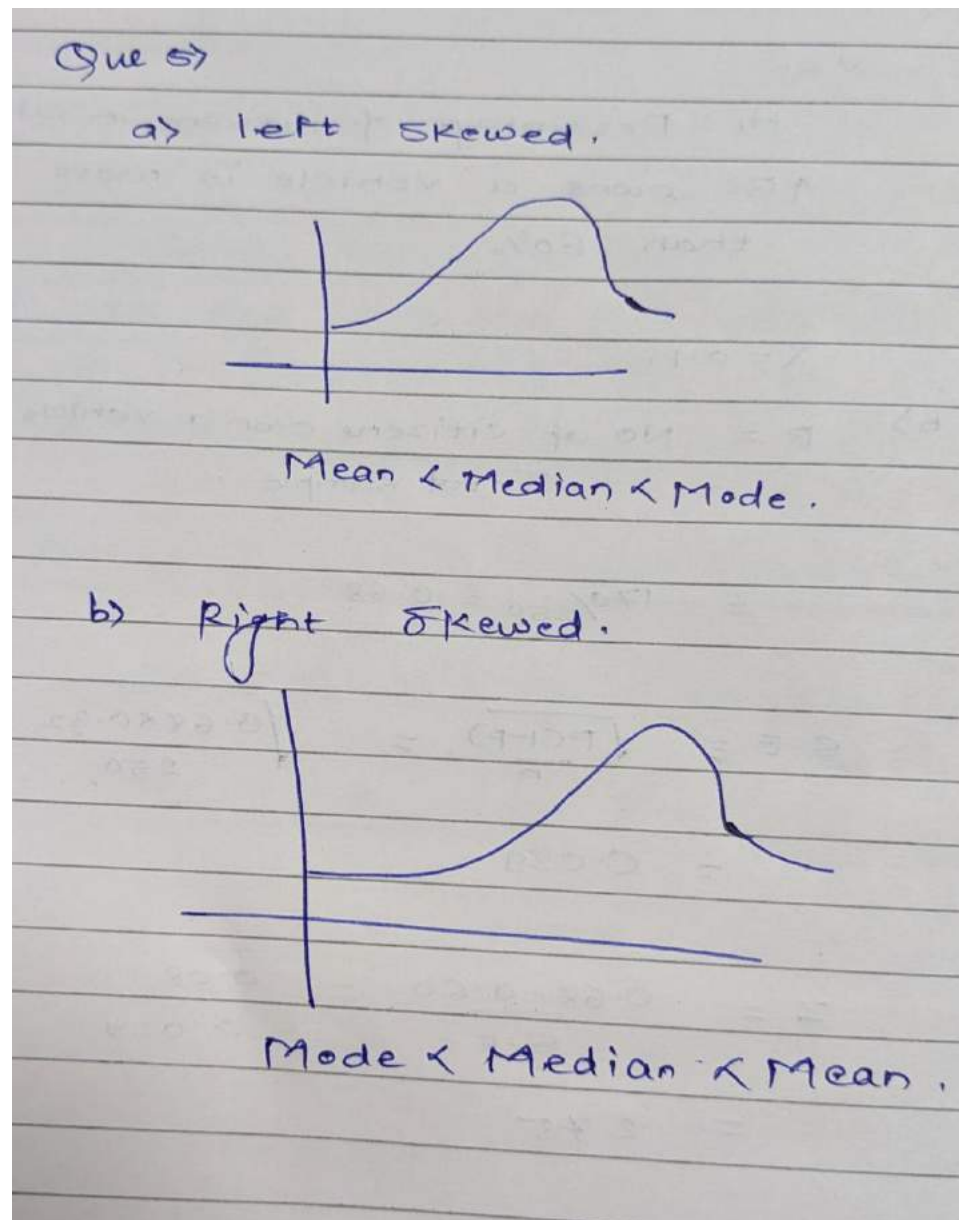 Que 5>
a> left skewed.
Mean < Median < Mode.
b> Right Skewed.
Mode < Median < Mean.